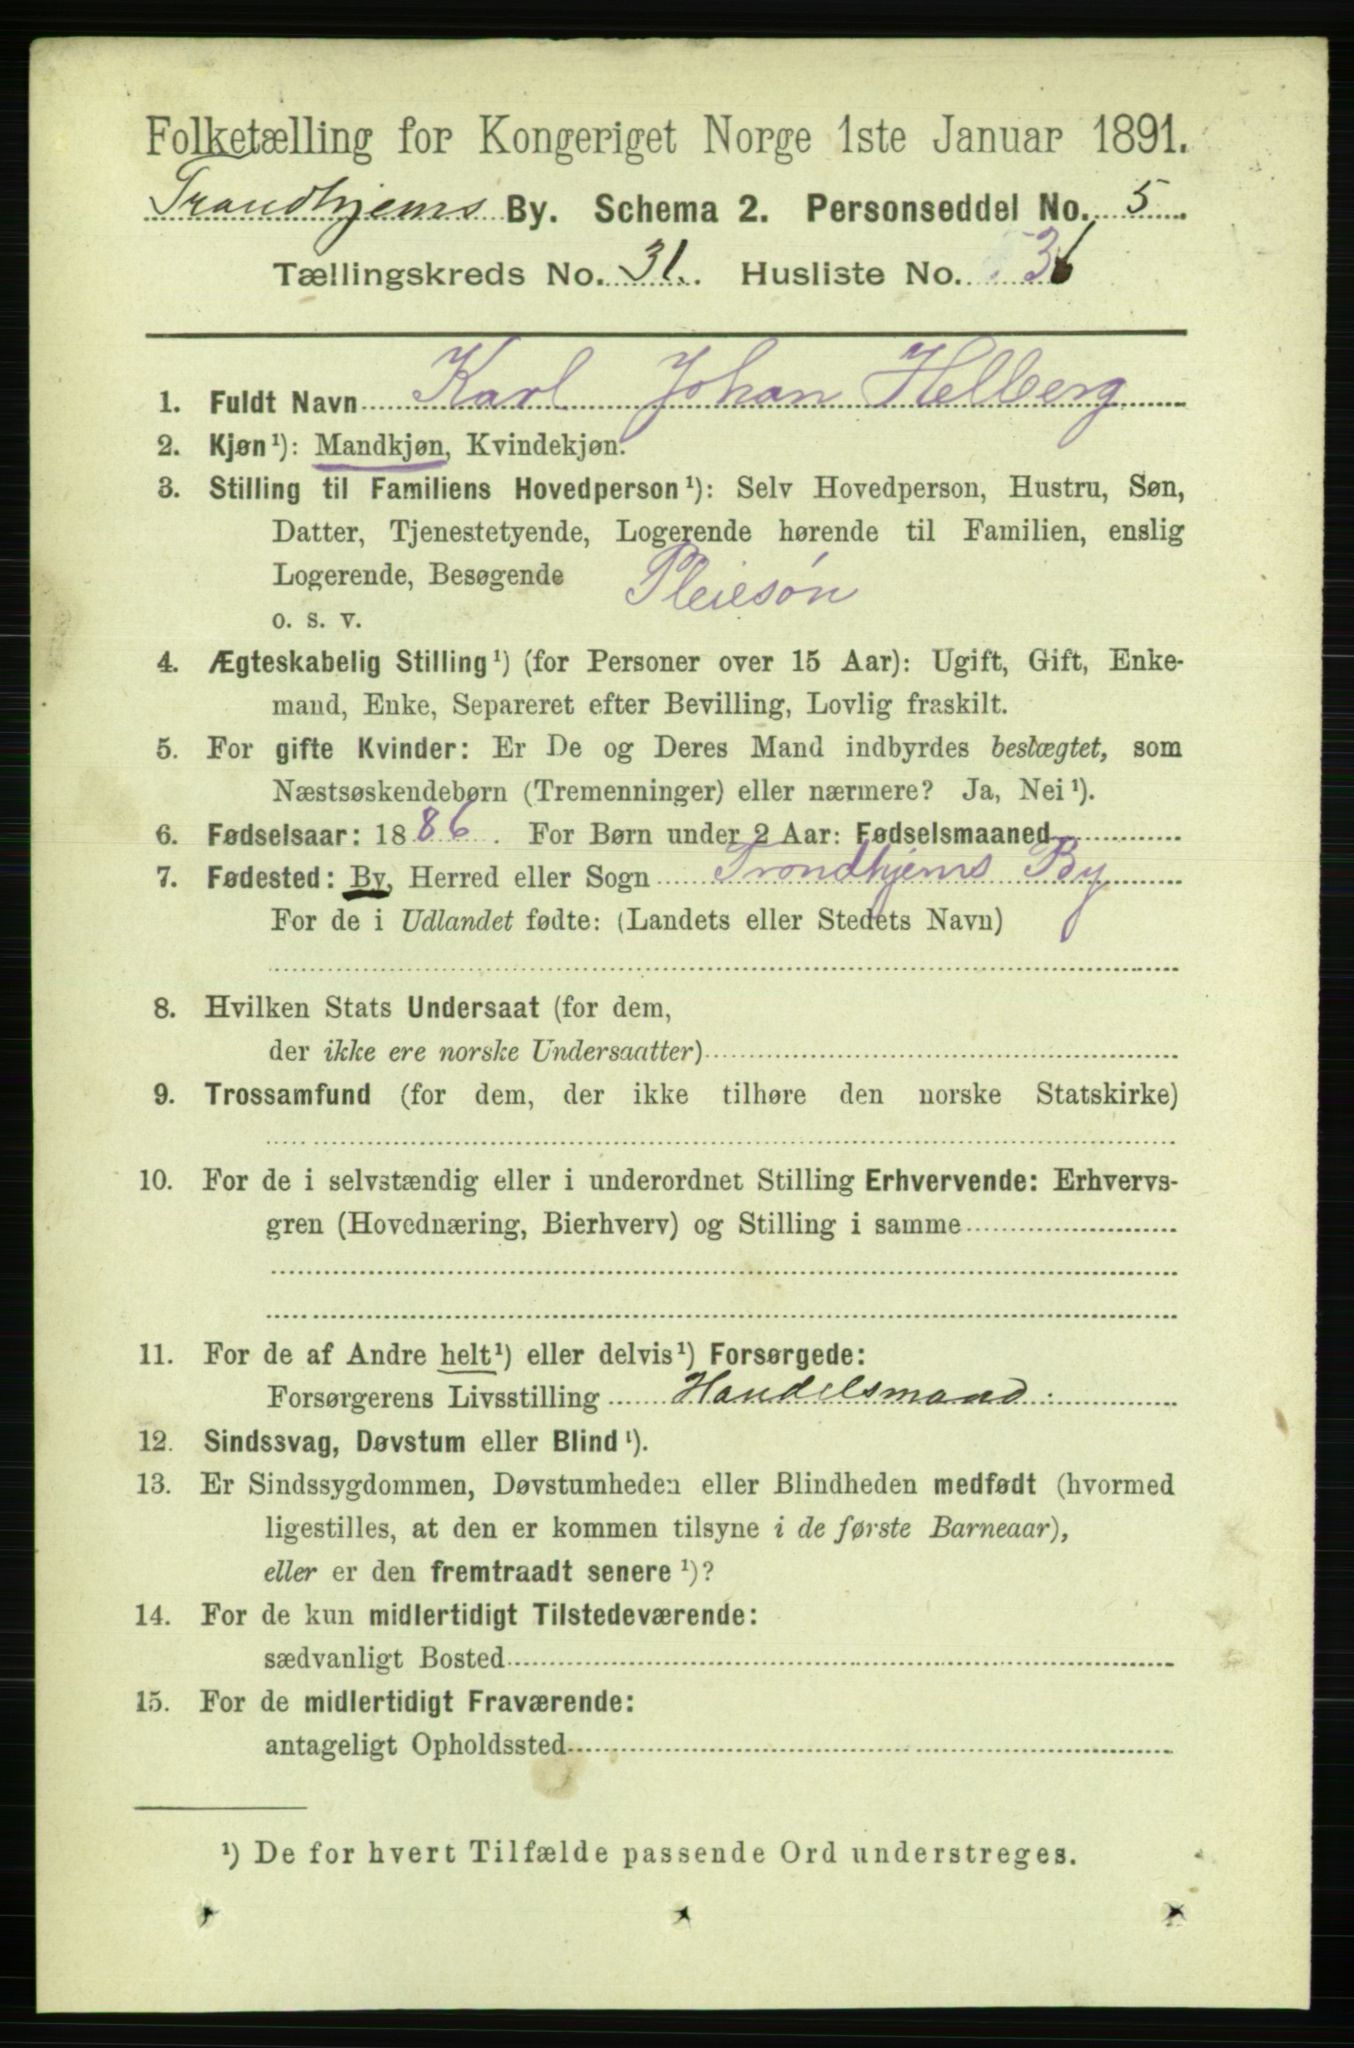 Folketælling for Kongeriget Norge 1ste Januar 1891.
Trondhjems By. Schema 2. Personseddel No. 5
Tællingskreds No. 31. Husliste No. 36
1. Fuldt Navn Karl Johan Helberg
2. Kjøn¹): Mandkjøn, Kvindekjøn.
3. Stilling til Familiens Hovedperson¹): Selv Hovedperson, Hustru, Søn,
Datter, Tjenestetyende, Logerende hørende til Familien, enslig
Logerende, Besøgende Pleiesøn
o. s. v.
4. Ægteskabelig Stilling¹) (for Personer over 15 Aar): Ugift, Gift, Enke-
mand, Enke, Separeret efter Bevilling, Lovlig fraskilt.
5. For gifte Kvinder: Er De og Deres Mand indbyrdes beslægtet, som
Næstsøskendebørn (Tremenninger) eller nærmere? Ja, Nei¹).
6. Fødselsaar: 1886. For Børn under 2 Aar: Fødselsmaaned
7. Fødested: By, Herred eller Sogn Trondhjems By
For de i Udlandet fødte: (Landets eller Stedets Navn)
8. Hvilken Stats Undersaat (for dem,
der ikke ere norske Undersaatter)
9. Trossamfund (for dem, der ikke tilhøre den norske Statskirke)
10. For de i selvstændig eller i underordnet Stilling Erhvervende: Erhvervs-
gren (Hovednæring, Bierhverv) og Stilling i samme
11. For de af Andre helt¹) eller delvis¹) Forsørgede:
Forsørgerens Livsstilling Handelsmand
12. Sindssvag, Døvstum eller Blind¹).
13. Er Sindssygdommen, Døvstumheden eller Blindheden medfødt (hvormed
ligestilles, at den er kommen tilsyne i de første Barneaar),
eller er den fremtraadt senere¹)?
14. For de kun midlertidigt Tilstedeværende:
sædvanligt Bosted
15. For de midlertidigt Fraværende:
antageligt Opholdssted
¹) De for hvert Tilfælde passende Ord understreges.